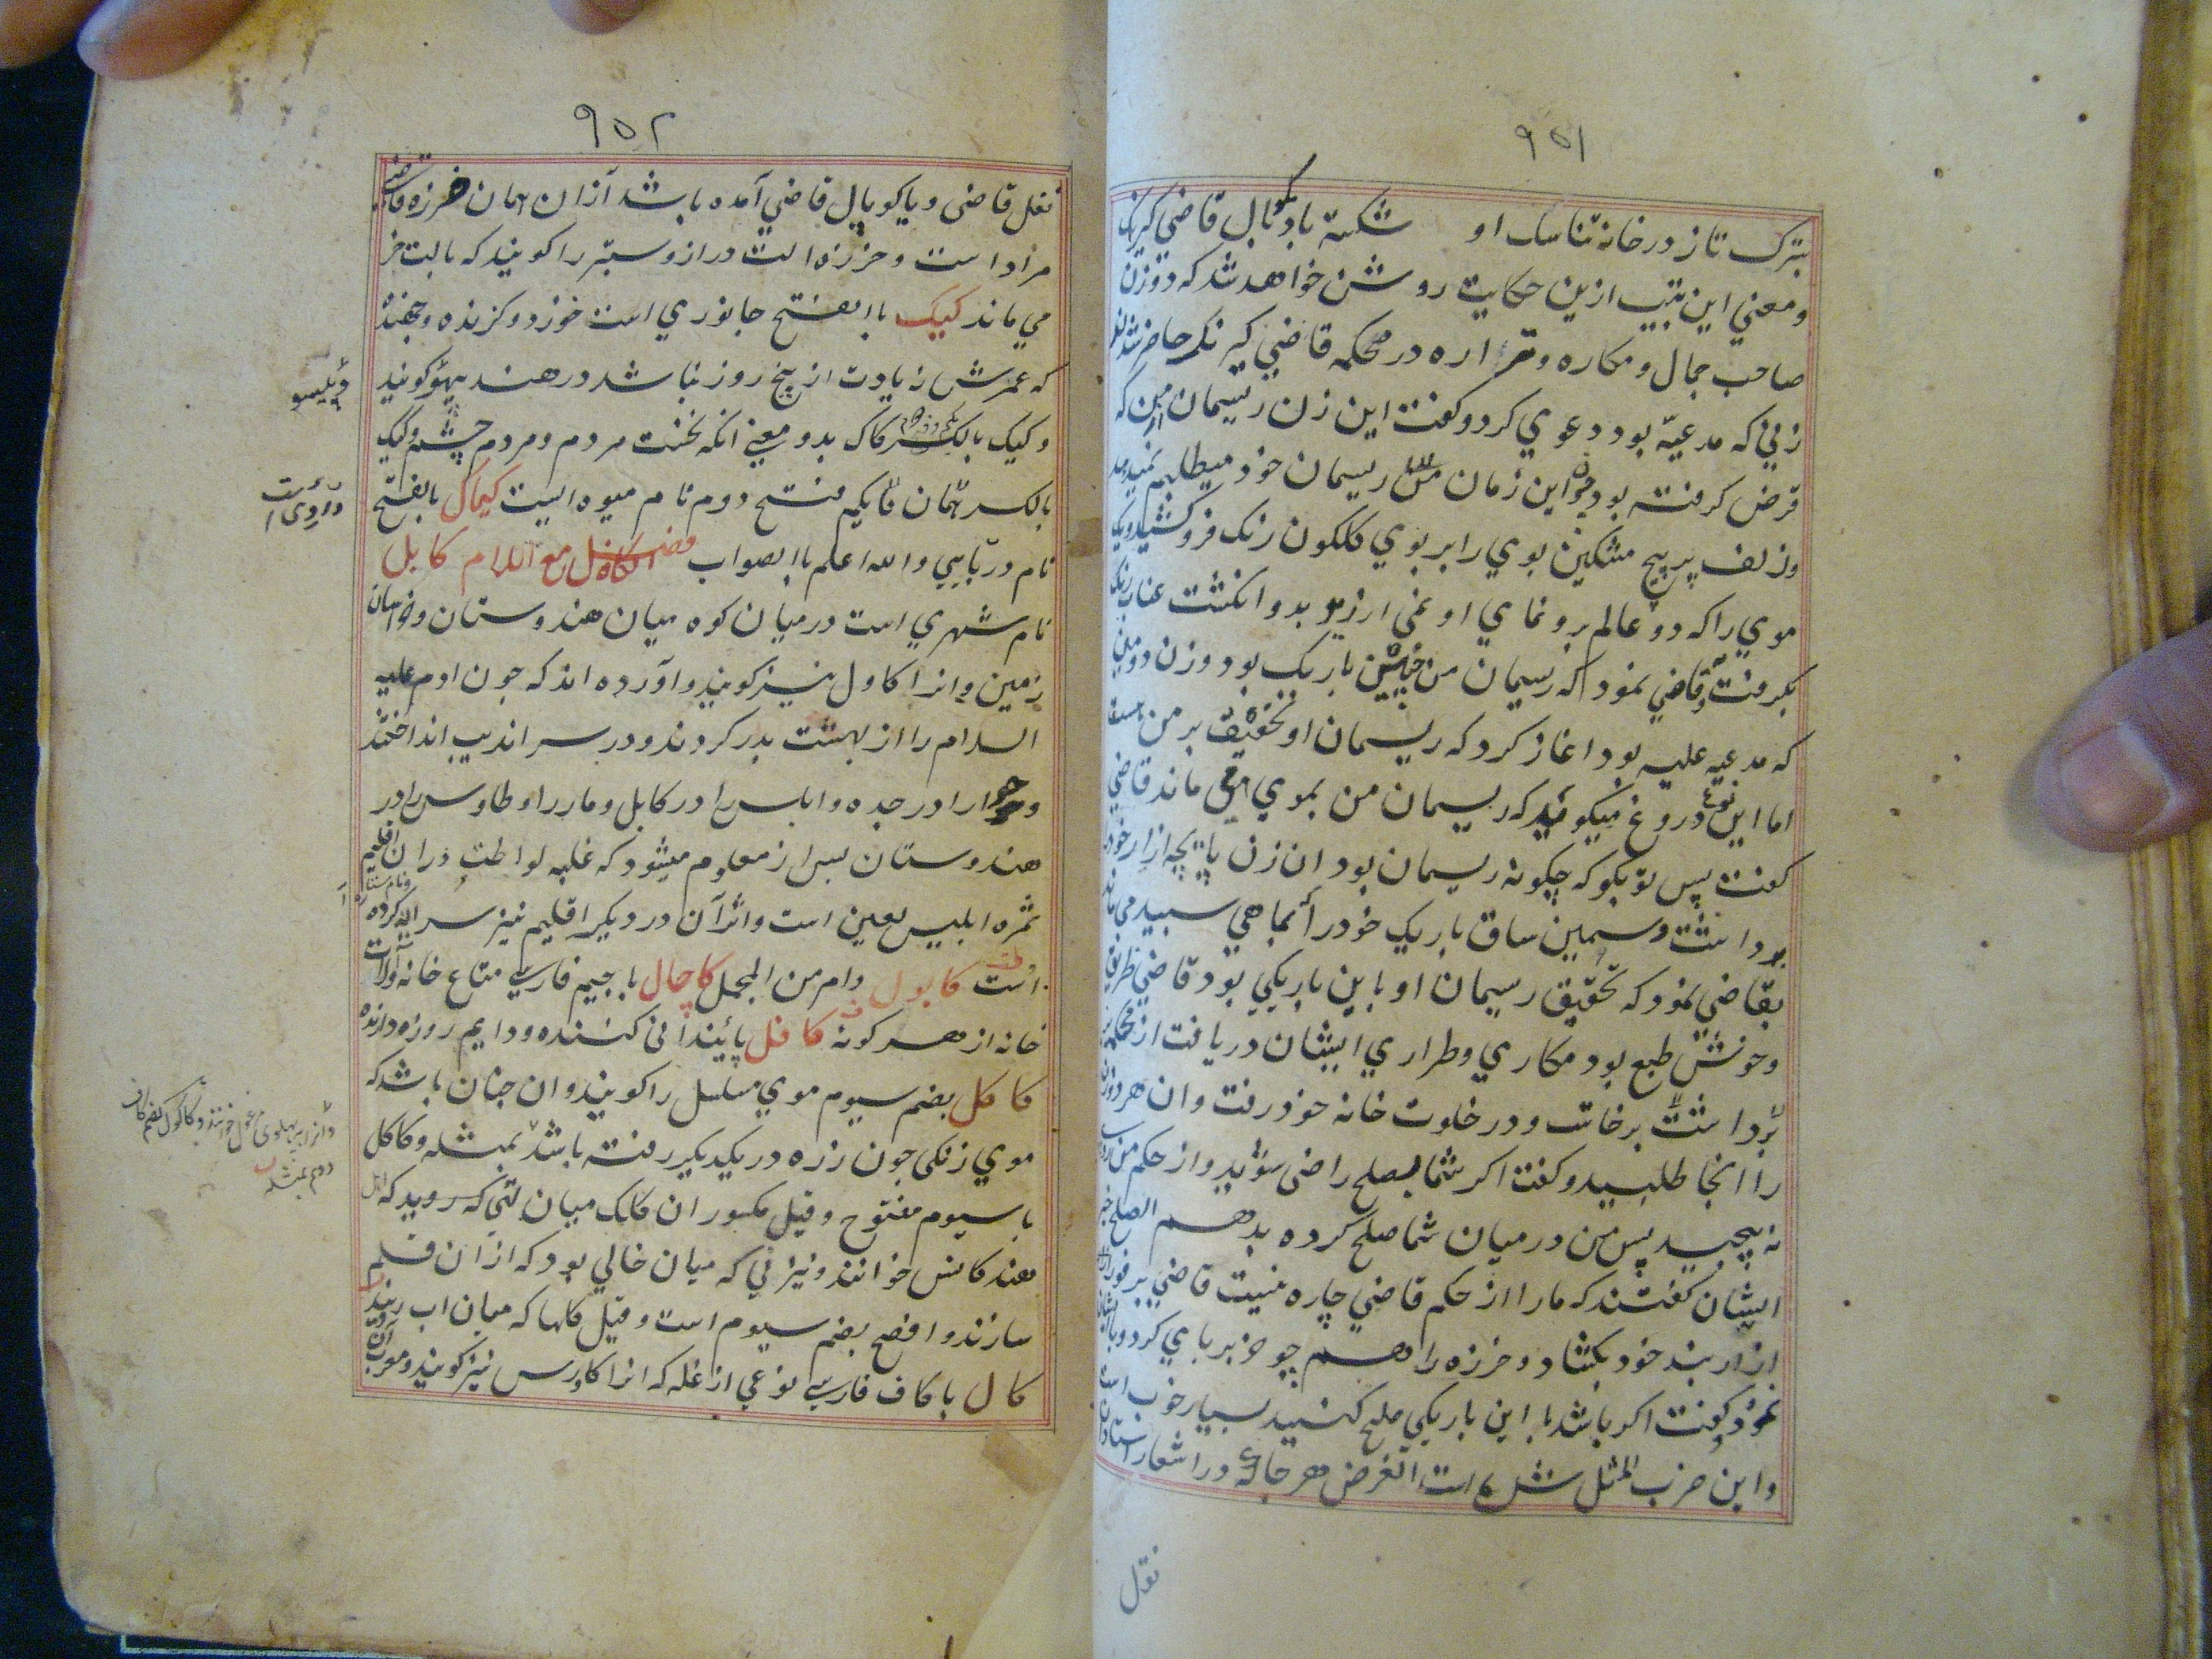 ۹۵۱
بترک تاز در خانه تناسک او شکسته باد کوبال قاضی کیرنک
و معنی این بیت ازین حکایت روشن خواهد شد که دو زن
صاحب جمال و مکاره و طراره در محکمه قاضی کیرنک حاضر شدند
زنی که مدعیه بود دعوی کرد و کفت این زن ریسمان از من که
قرض کرفته بود این زمان من ریسمان خود میطلبم نمیدهد
و زلف پر پیچ مشکین بوی را بر روی کلکون رنک فرو کشید و یک
موی را که دو عالم برونمای او نمی ارزید بدو انکشت عناب رنک
بکرفت و قاضی نمود که ریسمان من چنین باریک بود و زن دومین
که مدعیه علیه بود اغاز کرد که ریسمان او بتحقیق بر من هست
اما این دروغ میکوید که ریسمان من بموی می ماند قاضی
کفت پس تو بکو که چکونه ریسمان بود ان زن پایچه ازار خود
برداشت و سیمین ساق باریک خود را بماهی سپید می ماند
بقاضی نمود که تحقیق ریسمان او باین باریکی بود قاضی ظریف
و خوش طبع بود مکاری و طراری ایشان دریافت از محکمه
برداشت برخاست و در خلوت خانه خود رفت و ان هر دو زن
را انجا طلبید و کفت اکر شما بصلح راضی شوید و از حکم من
نه پیچید پس من درمیان شما صلح کرده بدهم الصلح خیر
ایشان کفتند که ما را از حکم قاضی چاره نیست قاضی بر فور
ازار بند خود بکشاد و خرزه را همچو خر برپای کرد و بایشان
نمود و کفت اکر باشد با این باریکی صلح کنید بسیار خوب است
و این ضرب المثل شده است الغرض هر جا که در اشعار استادان
نقل
۹۵۲
نقل قاضی و یا کوپال قاضی آمده باشد ازان همان خرزه قاضی
مراد است و خرزه الت دراز و ستبر را کویند که بالت خر
می ماند کیک باالفتح جانوری است خورد و کزنده و جهنده
که عمرش زیادت از پنج روز نباشد در هند پهو کویند
و کیک بالکسر کاک بدو معنی انکه نخست مردم و مردم چشم و کیک
بالکسر همان قایکم فتح دوم نام میوه ایست کیماک بالفتح
نام دریایی والله اعلم باالصواب فصل الکاف مع اللام کابل
نام شهری است درمیان کوه میان هندوستان و خراسان
زمین و انرا کاول نیز کویند و اورده اند که چون ادم علیه
السلام را از بهشت بدر کردند و در سراندیب انداختند
و حوا را در جده و ابلیس را در کابل و مار را و طاوس را در
هندوستان پس از معلوم میشود که غلبه لواطت دران اقلیم
ثمره ابلیس لعین است و اثر آن در دیکر اقلیم نیز سرایه کرده
است کابول وامر من المجمل کاچال با جیم فارسی متاع خانه و آلات
خانه از هر کونه کافل پائیندانی کننده و دایم روزه دارنده
کاکل بضم سیوم موی مسلسل را کویند و ان چنان باشد که
موی زنکی چون زره در یکدیکر رفته باشد بمثله و کاکل
با سیوم مفتوح و قیل مکسور ان کلک میان تهی که روید که اهل
هند کانس خوانند و نیز نی که میان خالی بود که از ان قلم
سازند و افصح بضم سیوم است و قیل کاها که میان اب رویند
کال با کاف فارسی نوعی از غله که انرا کاورس نیز کویند و معرب آن